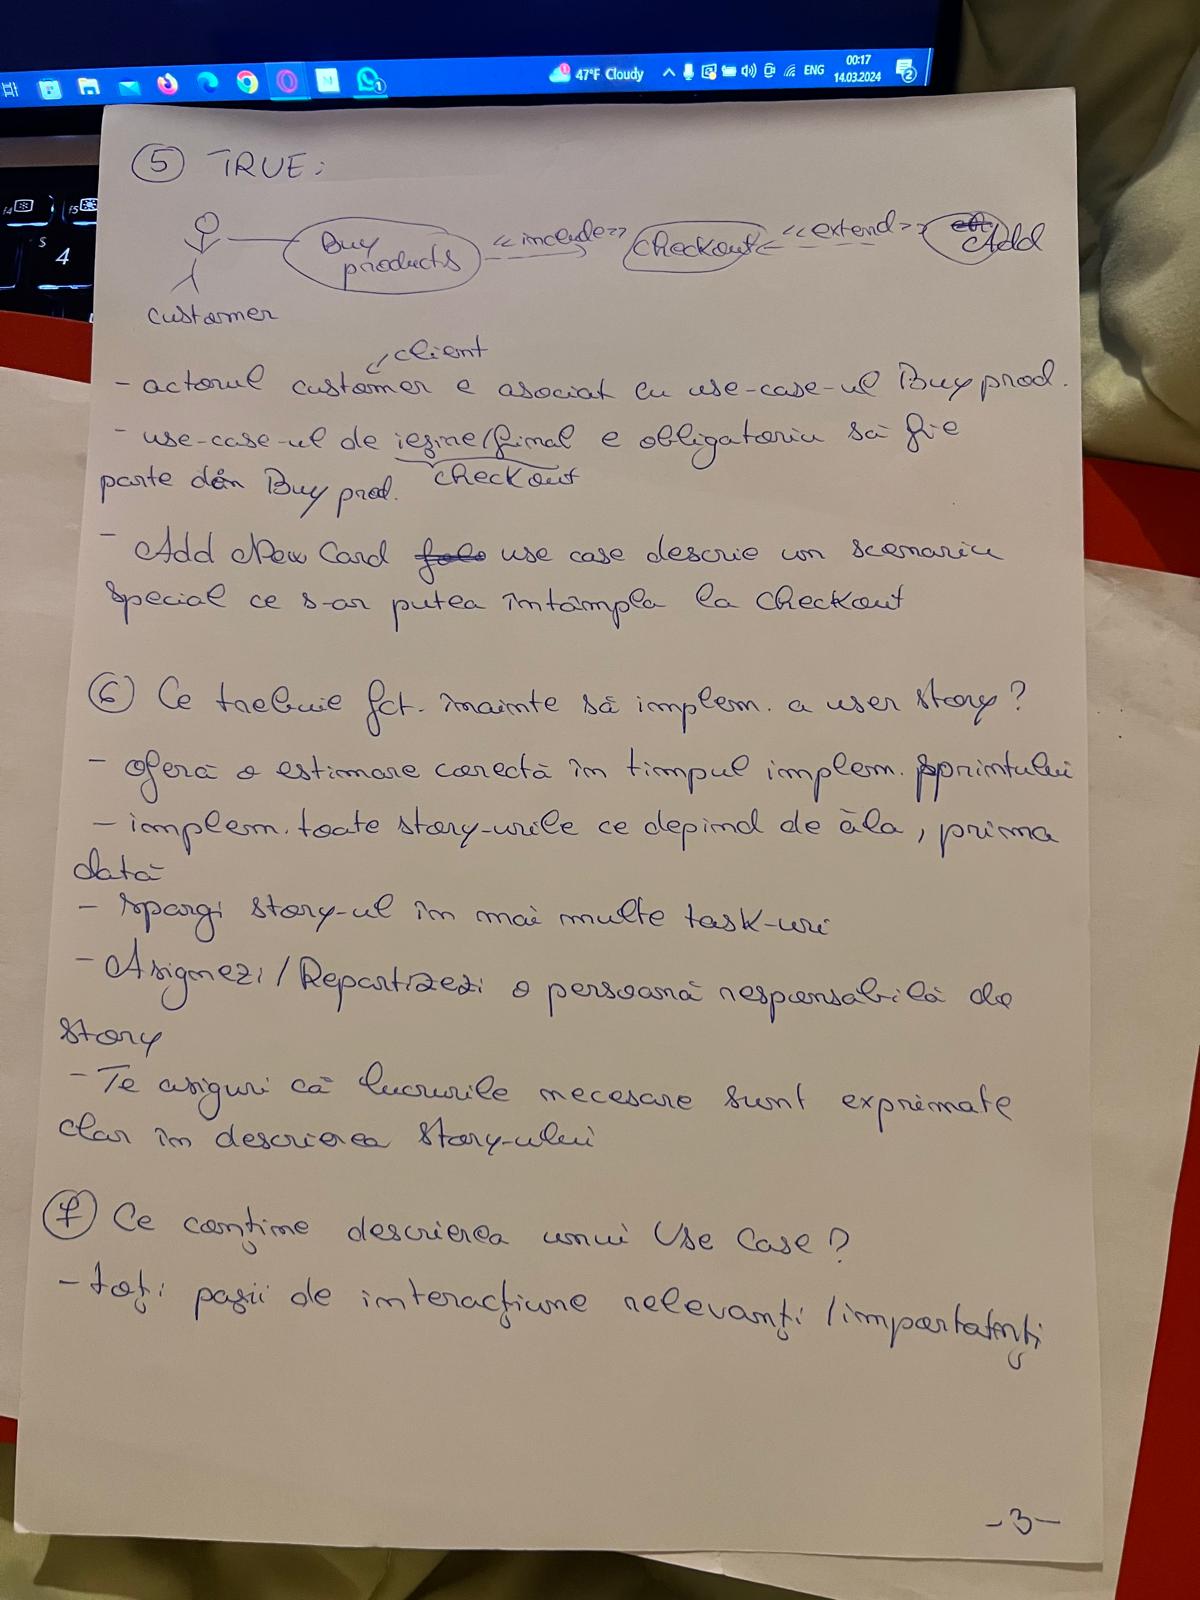 47°F Cloudy
ENG
00:17
14.03.2024
2
1
f4
f5
S
4
5 TRUE:
Buy
products
<<include>>
checkout
<<extend>>
Add
customer
client
- actorul customer e asociat cu use-case-ul Buy prod.
- use-case-ul de ieșire/final e obligatoriu să fie
parte din Buy prod.
checkout
- Add New Card use case descrie un scenariu
special ce s-ar putea întâmpla la checkout
6 Ce trebuie fct. înainte să implem. a user story?
- oferă o estimare corectă în timpul implem. sprintului
- implem. toate story-urile ce depind de ăla, prima
dată
- spargi story-ul în mai multe task-uri
- Asignezi/Repartizezi o persoană responsabilă de
story
- Te asiguri că lucrurile necesare sunt exprimate
clar în descrierea story-ului
7 Ce conține descrierea unui Use Case?
- toți pașii de interacțiune relevanți/importanți
-3-